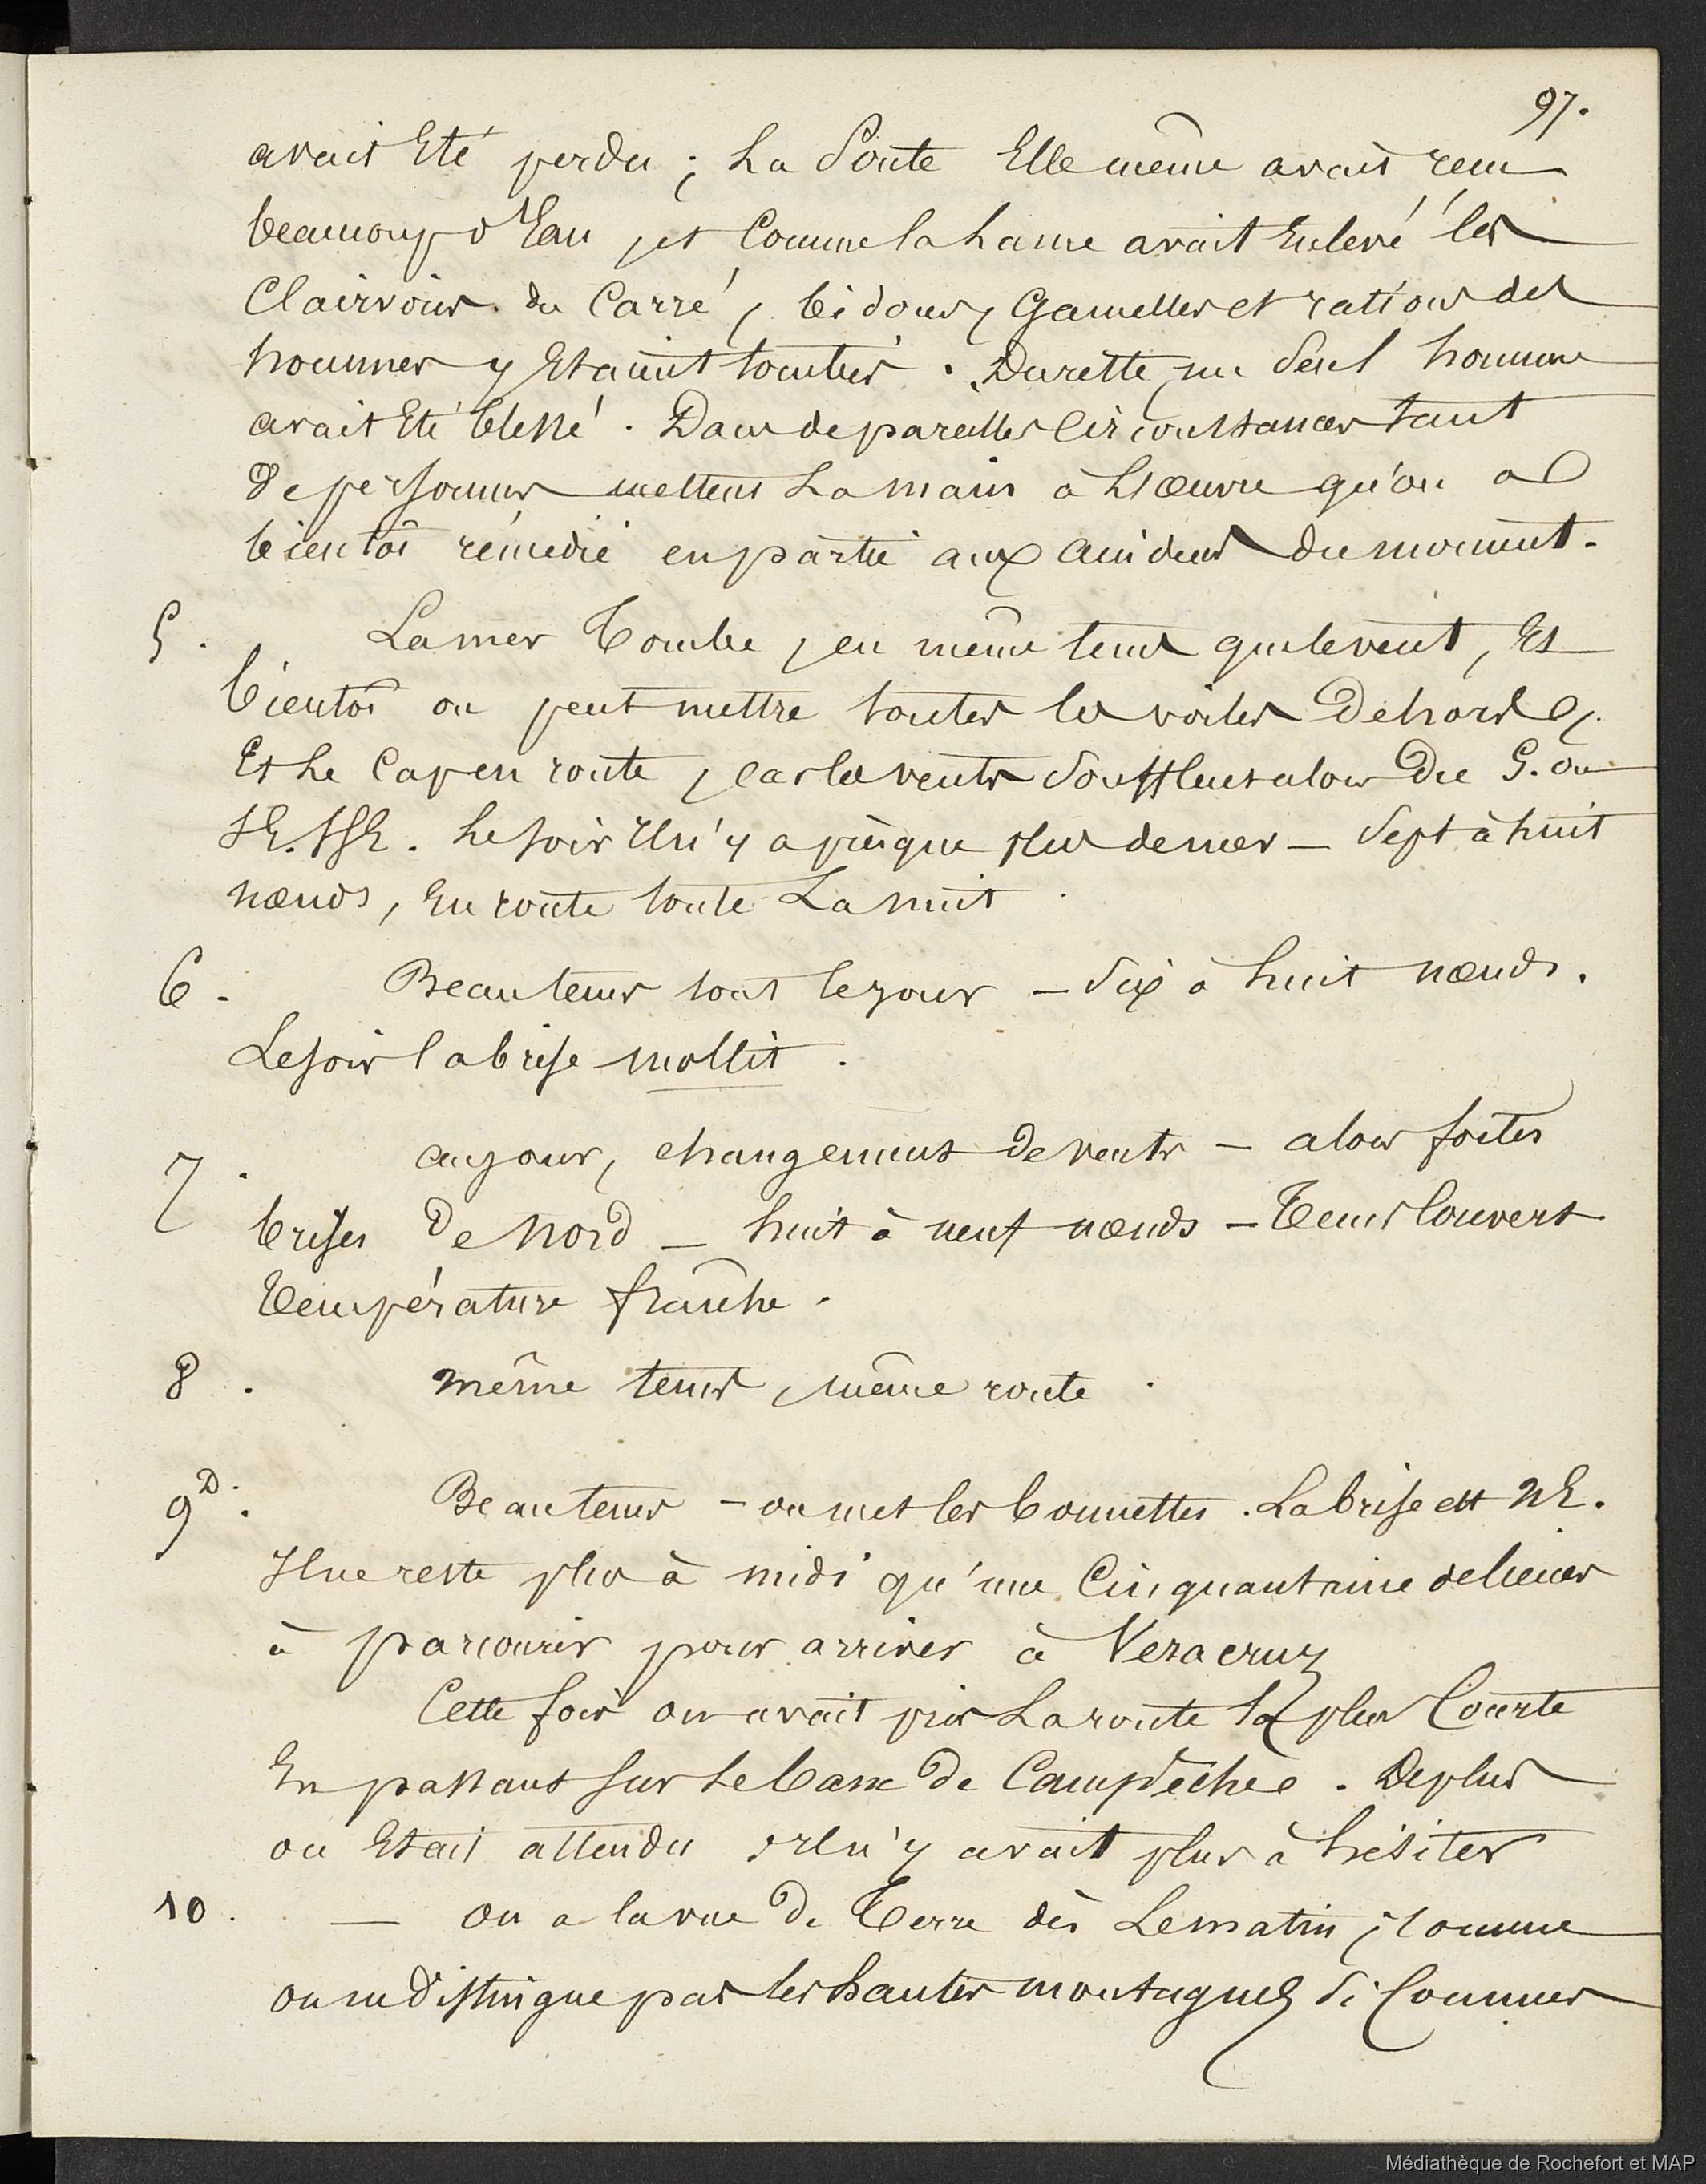 97.
avait Eté perdu ; La Soute Elle même avait reçu
beaucoup d'Eau, et Comme la Lame avait Enlevé les
Clairvoies du Carré, bidons, Gamelles et rations des
hommes y Etaient tombés. Du reste, un Seul homme
avait Eté blessé. Dans de pareilles Circonstances tant
de personnes mettent La main à L'œuvre qu'on a
bientôt rémédié en partie aux accidents du moment.
5. La mer Tombe, en même tems que le vent, Et
bientôt on peut mettre toutes les voiles Dehors
Et Le Cap en route, car les vents Soufflent alors Du S. ou
SE. SSE. Le soir Il n'y a presque plus de mer — Sept à huit
nœuds, En route toute La nuit.
6. Beau tems tout le jour — Six à huit nœuds.
Le soir la brise mollit.
7. au jour, changement de vents — alors fortes
brises De Nord — huit à neuf nœuds — Tems Couvert
Température fraîche.
8. même tems, même route.
9 D. Beau tems — on met les bonnettes. La brise est NE.
Il ne reste plus à midi qu'une Cinquantaine de lieues
à parcourir pour arriver à Veracruz
Cette fois on avait pris La route la plus Courte
En passant sur Le banc de Campêche. De plus
on Etait attendu, Il n'y avait plus à hésiter
10. — On a la vue De Terre dès Le matin, comme
on ne Distingue pas les hautes montagnes Si Connues
Médiathèque de Rochefort et MAP